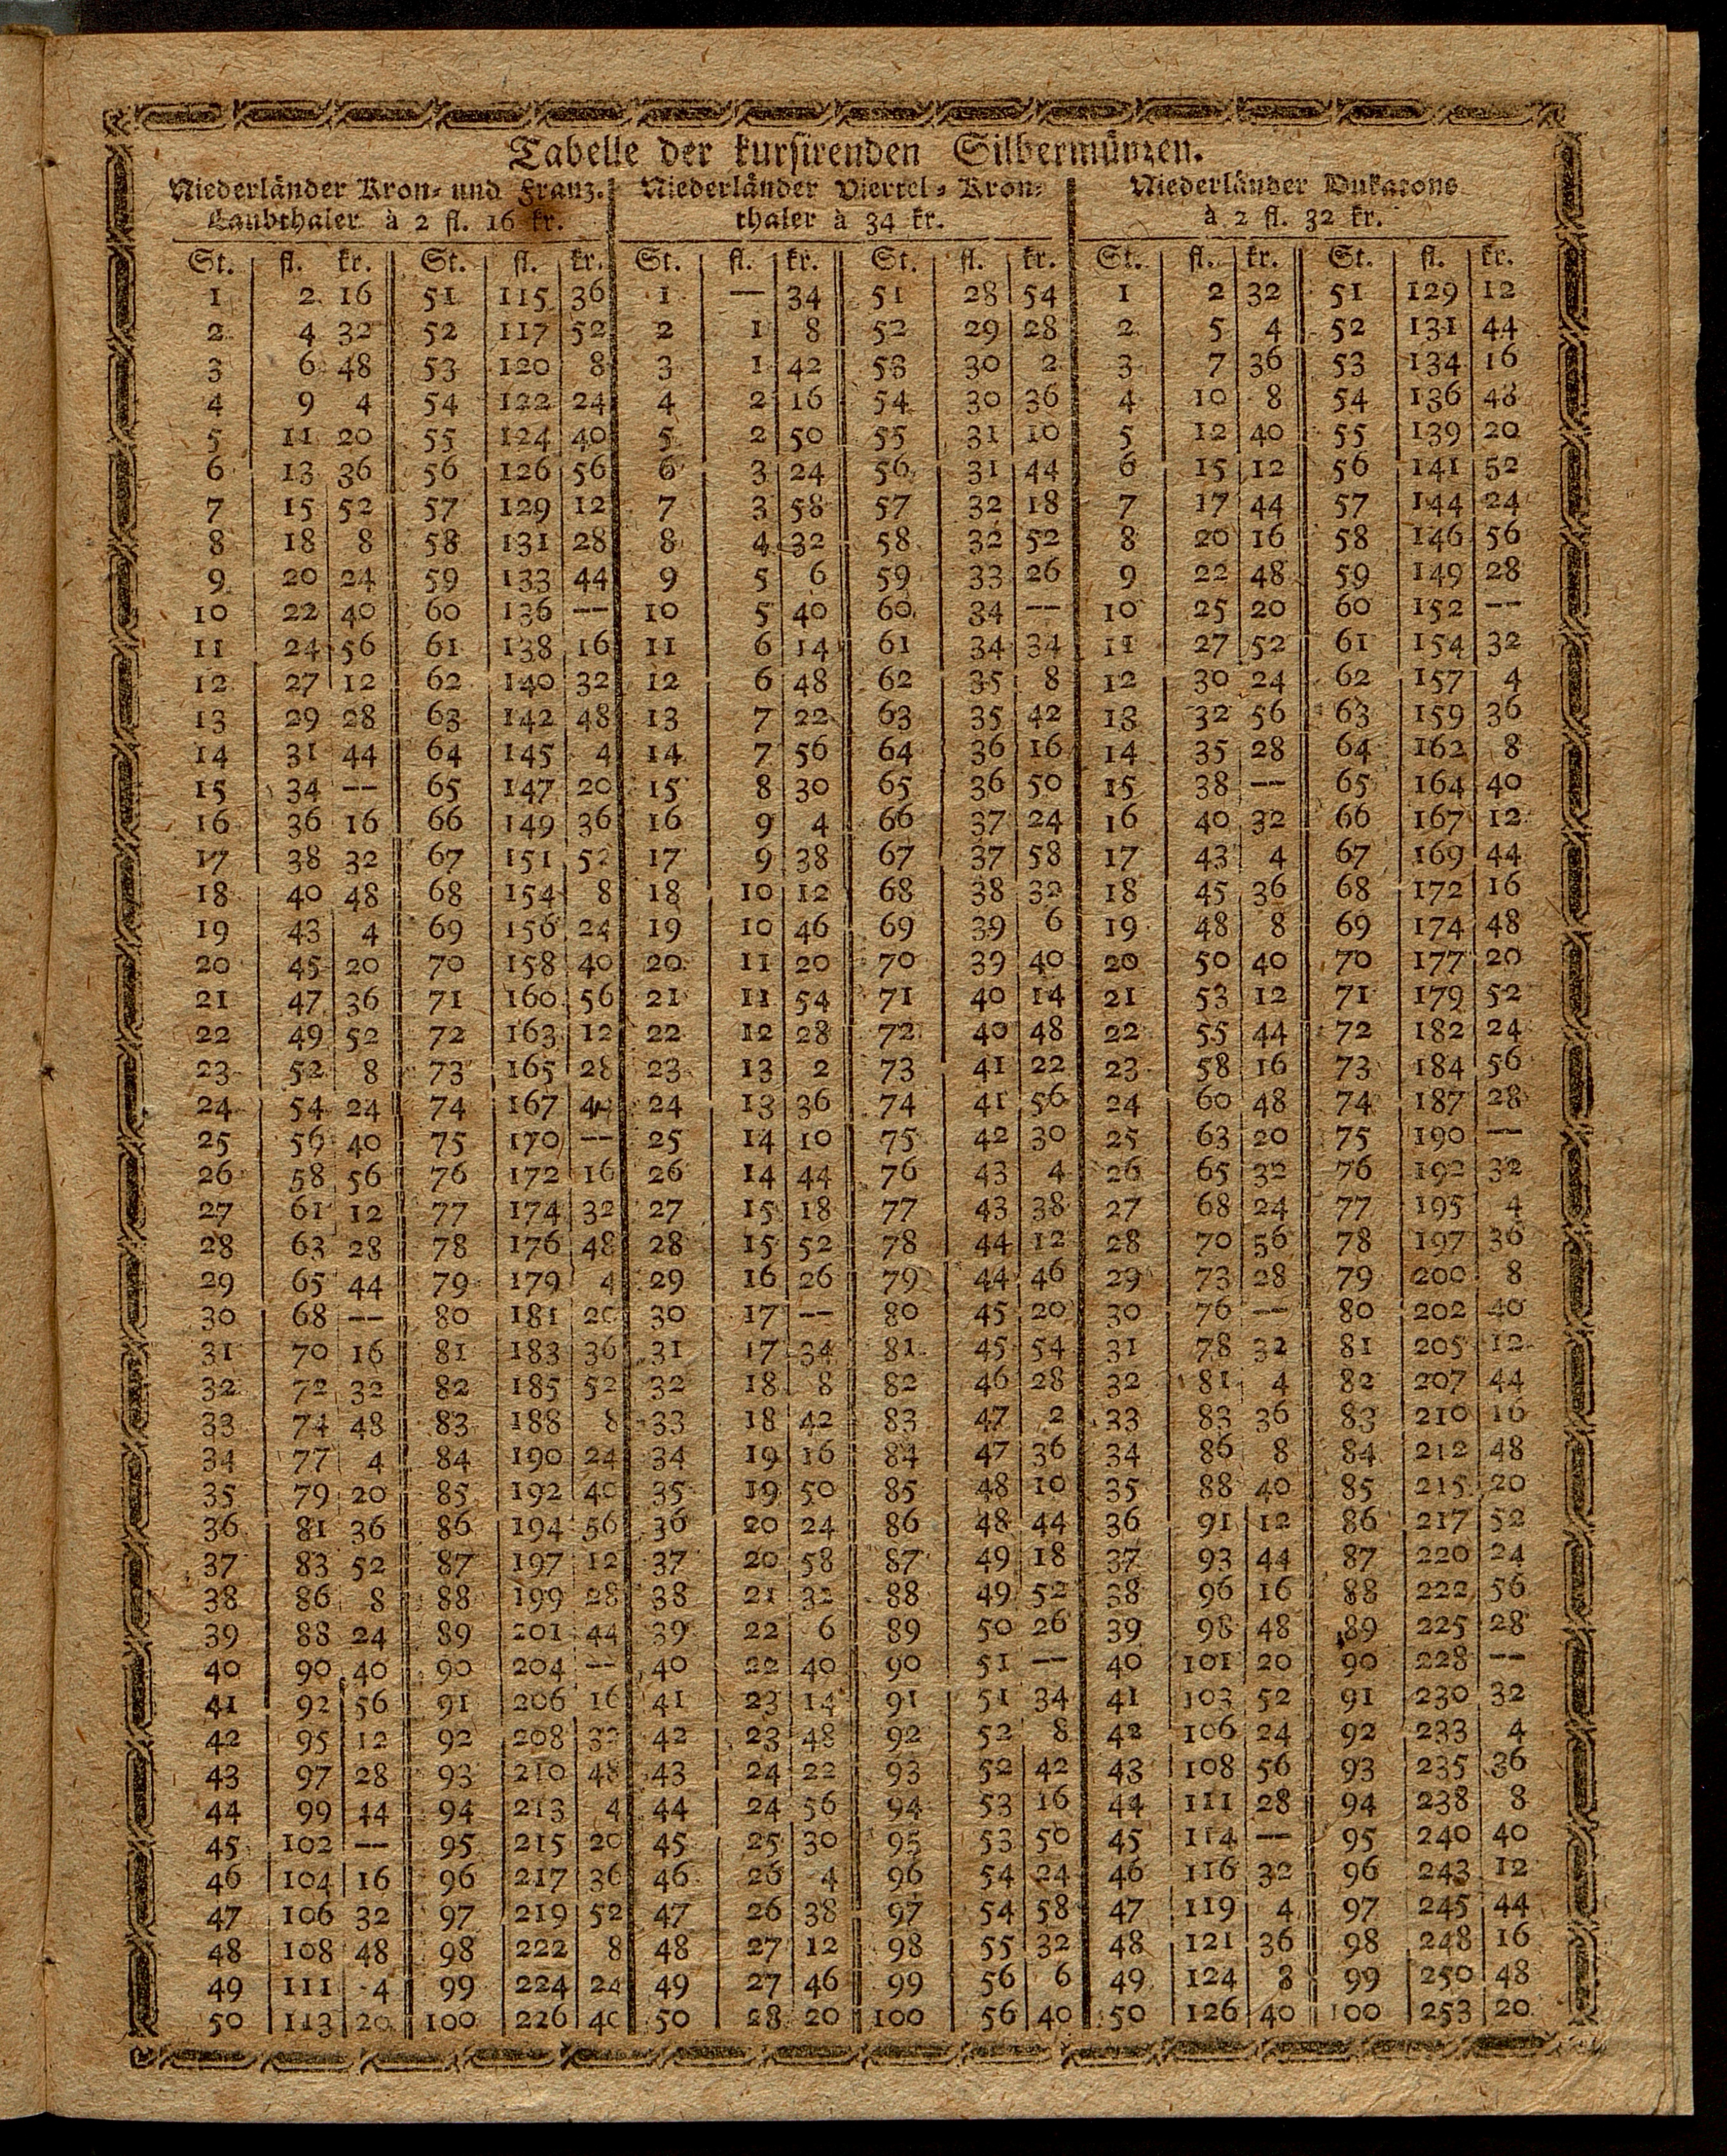 Tabelle der kursirenden Silbermünzen.
Niederländer Kron- und Franz. Niederländer Viertel-Kron- Niederländer Dukatons
Laubthaler à 2 fl. 16 kr. thaler à 34 kr. à 2 fl. 32 kr.
St. fl. kr. St. fl. kr. St. fl. kr. St. fl. kr. St. fl. kr. St. fl. kr.
1 2 16 51 115 36 1 — 34 51 28 54 1 2 32 51 129 12
2 4 32 52 117 52 2 1 8 52 29 28 2 5 4 52 131 44
3 6 48 53 120 8 3 1 42 53 30 2 3 7 36 53 134 16
4 9 4 54 122 24 4 2 16 54 30 36 4 10 8 54 136 48
5 11 20 55 124 40 5 2 50 55 31 10 5 12 40 55 139 20
6 13 36 56 126 56 6 3 24 56 31 44 6 15 12 56 141 52
7 15 52 57 129 12 7 3 58 57 32 18 7 17 44 57 144 24
8 18 8 58 131 28 8 4 32 58 32 52 8 20 16 58 146 56
9 20 24 59 133 44 9 5 6 59 33 26 9 22 48 59 149 28
10 22 40 60 136 — 10 5 40 60 34 — 10 25 20 60 152 —
11 24 56 61 138 16 11 6 14 61 34 34 11 27 52 61 154 32
12 27 12 62 140 32 12 6 48 62 35 8 12 30 24 62 157 4
13 29 28 63 142 48 13 7 22 63 35 42 13 32 56 63 159 36
14 31 44 64 145 4 14 7 56 64 36 16 14 35 28 64 162 8
15 34 — 65 147 20 15 8 30 65 36 50 15 38 — 65 164 40
16 36 16 66 149 36 16 9 4 66 37 24 16 40 32 66 167 12
17 38 32 67 151 52 17 9 38 67 37 58 17 43 4 67 169 44
18 40 48 68 154 8 18 10 12 68 38 32 18 45 36 68 172 16
19 43 4 69 156 24 19 10 46 69 39 6 19 48 8 69 174 48
20 45 20 70 158 40 20 11 20 70 39 40 20 50 40 70 177 20
21 47 36 71 160 56 21 11 54 71 40 14 21 53 12 71 179 52
22 49 52 72 163 12 22 12 28 72 40 48 22 55 44 72 182 24
23 52 8 73 165 28 23 13 2 73 41 22 23 58 16 73 184 56
24 54 24 74 167 44 24 13 36 74 41 56 24 60 48 74 187 28
25 56 40 75 170 — 25 14 10 75 42 30 25 63 20 75 190 —
26 58 56 76 172 16 26 14 44 76 43 4 26 65 32 76 192 32
27 61 12 77 174 32 27 15 18 77 43 38 27 68 24 77 195 4
28 63 28 78 176 48 28 15 52 78 44 12 28 70 56 78 197 36
29 65 44 79 179 4 29 16 26 79 44 46 29 73 28 79 200 8
30 68 — 80 181 20 30 17 — 80 45 20 30 76 — 80 202 40
31 70 16 81 183 36 31 17 34 81 45 54 31 78 32 81 205 12
32 72 32 82 185 52 32 18 8 82 46 28 32 81 4 82 207 44
33 74 48 83 188 8 33 18 42 83 47 2 33 83 36 83 210 16
34 77 4 84 190 24 34 19 16 84 47 36 34 86 8 84 212 48
35 79 20 85 192 40 35 19 50 85 48 10 35 88 40 85 215 20
36 81 36 86 194 56 36 20 24 86 48 44 36 91 12 86 217 52
37 83 52 87 197 12 37 20 58 87 49 18 37 93 44 87 220 24
38 86 8 88 199 28 38 21 32 88 49 52 38 96 16 88 222 56
39 88 24 89 201 44 39 22 6 89 50 26 39 98 48 89 225 28
40 90 40 90 204 — 40 22 40 90 51 — 40 101 20 90 228 —
41 92 56 91 206 16 41 23 14 91 51 34 41 103 52 91 230 32
42 95 12 92 208 32 42 23 48 92 52 8 42 106 24 92 233 4
43 97 28 93 210 48 43 24 22 93 52 42 43 108 56 93 235 36
44 99 44 94 213 4 44 24 56 94 53 16 44 111 28 94 238 8
45 102 — 95 215 20 45 25 30 95 53 50 45 114 — 95 240 40
46 104 16 96 217 36 46 26 4 96 54 24 46 116 32 96 243 12
47 106 32 97 219 52 47 26 38 97 54 58 47 119 4 97 245 44
48 108 48 98 222 8 48 27 12 98 55 32 48 121 36 98 248 16
49 111 4 99 224 24 49 27 46 99 56 6 49 124 8 99 250 48
50 113 20 100 226 40 50 28 20 100 56 40 50 126 40 100 253 20